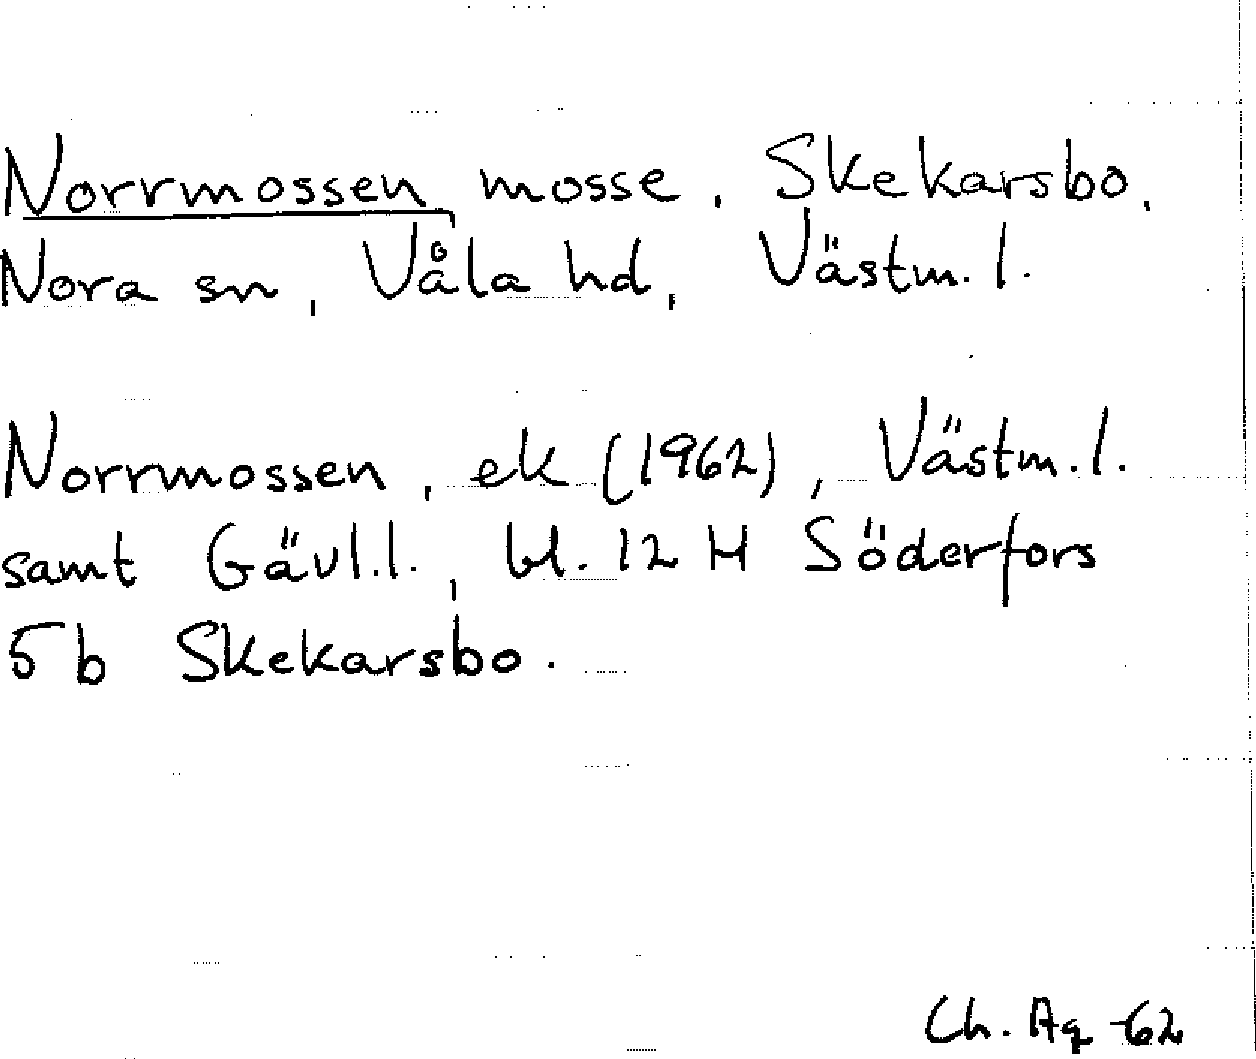 Norrmossen, mosse, Skekarsbo,
Nora sn, Våla hd, Västm. l.
Norrmossen, ek (1962), Västm. l.
samt Gävl. l., bl. 12 H Söderfors
5 b Skekarsbo.
Ch. Aq -62